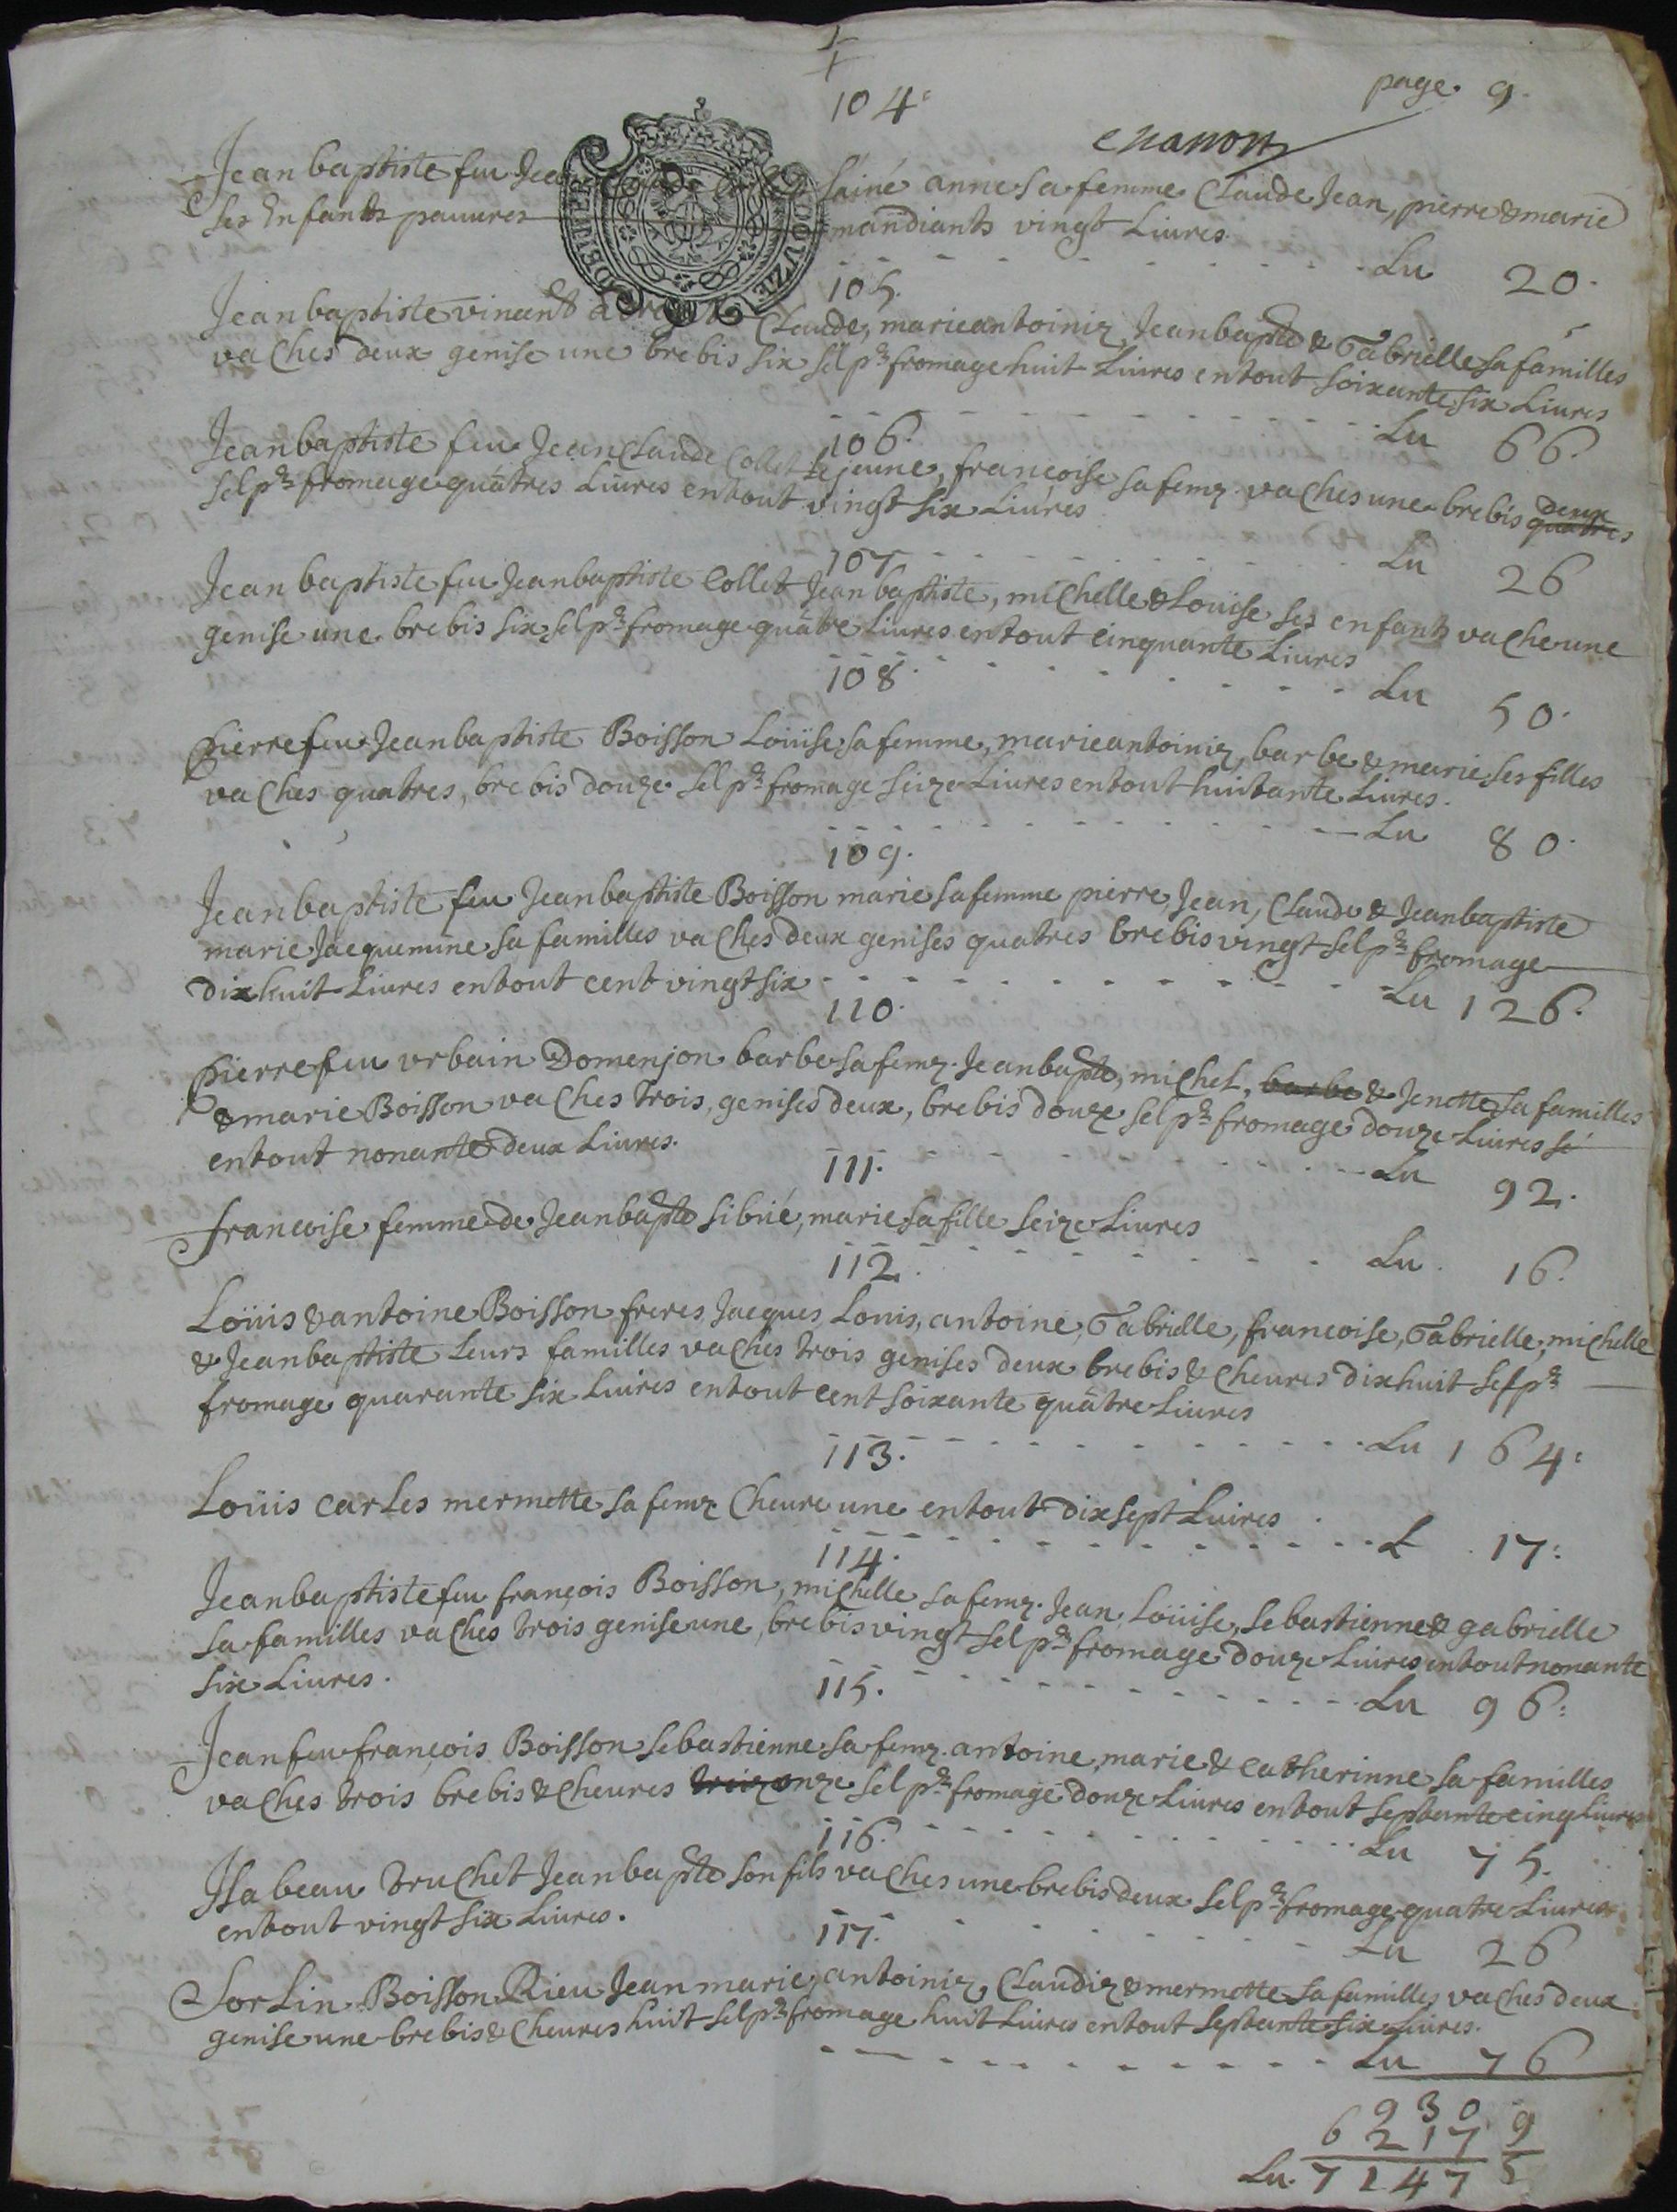 page 9.
104.
chanon
Jean baptiste feu Jean Collet lainé anne sa femme Claude Jean, pierre & marie
ses Enfants pauures mandiants vingt Liures.
Lu 20.
105.
Jean baptiste vincent Claude, marie antoinie, Jean bapte & Gabrielle sa familles
vaches deux genise une brebis six sel pr fromage huit Liures en tout soixante six Liures
Lu 66.
106.
Jean baptiste feu Jean Claude Collet Le jeune, francoise sa feme vaches une brebis quatres deux
sel pr fromage quatres Liures en tout vingt six Liures
Lu 26
107
Jean baptiste feu Jean baptiste Collet Jean baptiste, michelle & Louise ses enfants vache une
genise une brebis six sel pr fromage quatre Liures en tout cinquante Liures
Lu 50.
108.
pierre feu Jean baptiste Boisson Loüise sa femme, marie antoinie, barbe & marie ses filles
vaches quatres, brebis douze sel pr fromage seize Liures en tout huitante Liures.
Lu 80.
109.
Jean baptiste feu Jean baptiste Boisson marie sa femme pierre, Jean, Claude & Jean baptiste
marie Jacquemine sa familles vaches deux genises quatres brebis vingt sel pr fromage
dix huit Liures en tout cent vingt six
Lu 126.
110.
pierre feu vrbain Domenjon barbe sa feme. Jean bapte, michel, barbe & Jenette sa familles
& marie Boisson vaches trois, genises deux, brebis douze sel pr fromage douze Liures si
en tout nonante deux Liures.
Lu 92.
111.
francoise femme de Jean bapte sibué, marie sa fille seize Liures
Lu. 16.
112.
Loüis & antoine Boisson freres, Jacques, Louis, antoine, Gabrielle, francoise, Gabrielle, michelle
& Jean baptiste Leurs familles vaches trois genises deux brebis & cheures dix huit sel pr
fromage quarante six Luires en tout cent soixante quatre Liures
Lu 164.
113.
Loüis carles mermette sa feme cheure une en tout dix sept Luires
L 17.
114.
Jean baptiste feu françois Boisson, michelle sa feme. Jean, Loüise, sebastienne & gabrielle
sa familles vaches trois genise une, brebis vingt sel pr fromage douze Liures en tout nonante
six Liures.
Lu 96.
115.
Jean feu françois Boisson sebastienne sa feme. antoine, marie & catherinne sa familles
vaches trois brebis & cheures treize onze sel pr fromage douze Liures en tout septante cinq Liures
Lu 75.
116.
Jsabeau truchet Jean bapte son fils vaches une brebis deux sel pr fromage quatre Liures
en tout vingt six Liures.
Lu 26
117.
Sorlin Boisson Rieu Jean marie, antoinie, Claudie & mermette sa familles vaches deux
genise une brebis & cheures huit sel pr fromage huit Liures en tout septante six Liures.
Lu 76
930
6217 9
Lu. 7147 5